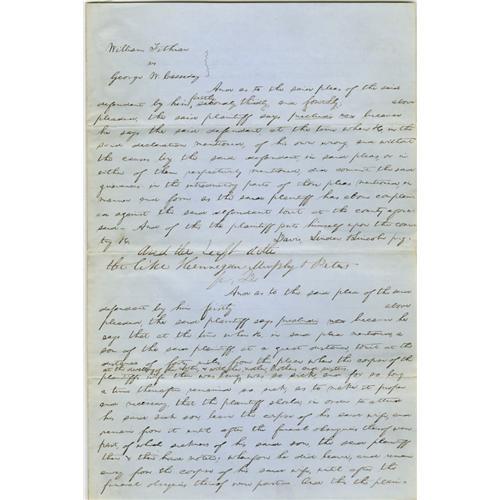 William Fithian
vs
George W. Casseday
And as to the said pleas of the said
firstly
defendant by him secondly thirdly and fourthly above
pleaded, the said plaintiff says precludi non because
he says the said defendant, at the time when &c, in the
said declaration mentioned, of his own wrong and without
the cause by the said defendant, in said pleas, or in
either of them respectively mentioned, did commit the said
grievances in the introductory parts of those pleas mentioned, in
manner and form as the said plaintiff has above complain-
ed against the said defendant towit at the county afore-
said. And of this the plaintiff puts himself upon the country
by &c. Davis, Linder & Lincoln p.q.
And the deft doth
the like Hannegan, Murphy & Peters
And as to the said plea of the said
defendant by him firstly above
pleaded, the said plaintiff says precludi non because he
says that at the time &c in said plea mentioned, a
son of the said plaintiff at a great distance, towit at the
distance of forty miles from the place where the corpse of the
plaintiff's wife then was, was so sick, and for so long
a time thereafter remained so sick, as to make it proper
and necessary that the plaintiff should, in order to attend
his said sick son leave the corpse of his said wife, and
remain from it until after the funeral obsequies thereof were
past, of which sickness of his said son, the said plaintiff
then & there had notice; wherefore he did leave, and remain
away from the corpse of his said wife, until after the
funeral obsequies thereof were past. And this the plain-